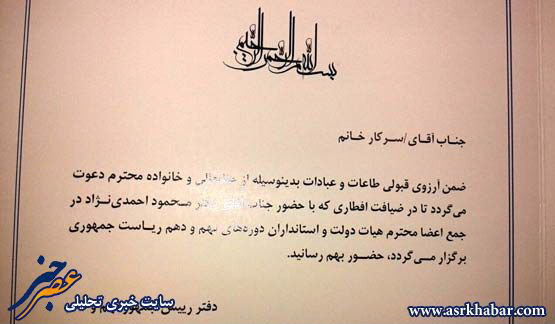 بسم الله الرحمن الرحیم
جناب آقای/سرکار خانم
ضمن آرزوی قبولی طاعات و عبادات بدینوسیله از و خانواده محترم دعوت
می‌گردد تا در ضیافت افطاری که با حضور جناب محمود احمدی‌نژاد در
جمع اعضا محترم هیات دولت و استانداران دوره‌های نهم و دهم ریاست جمهوری
برگزار می‌گردد، حضور بهم رسانید.
دفتر رییس
عصر خبر
سایت خبری تحلیلی
www.asrkhabar.com